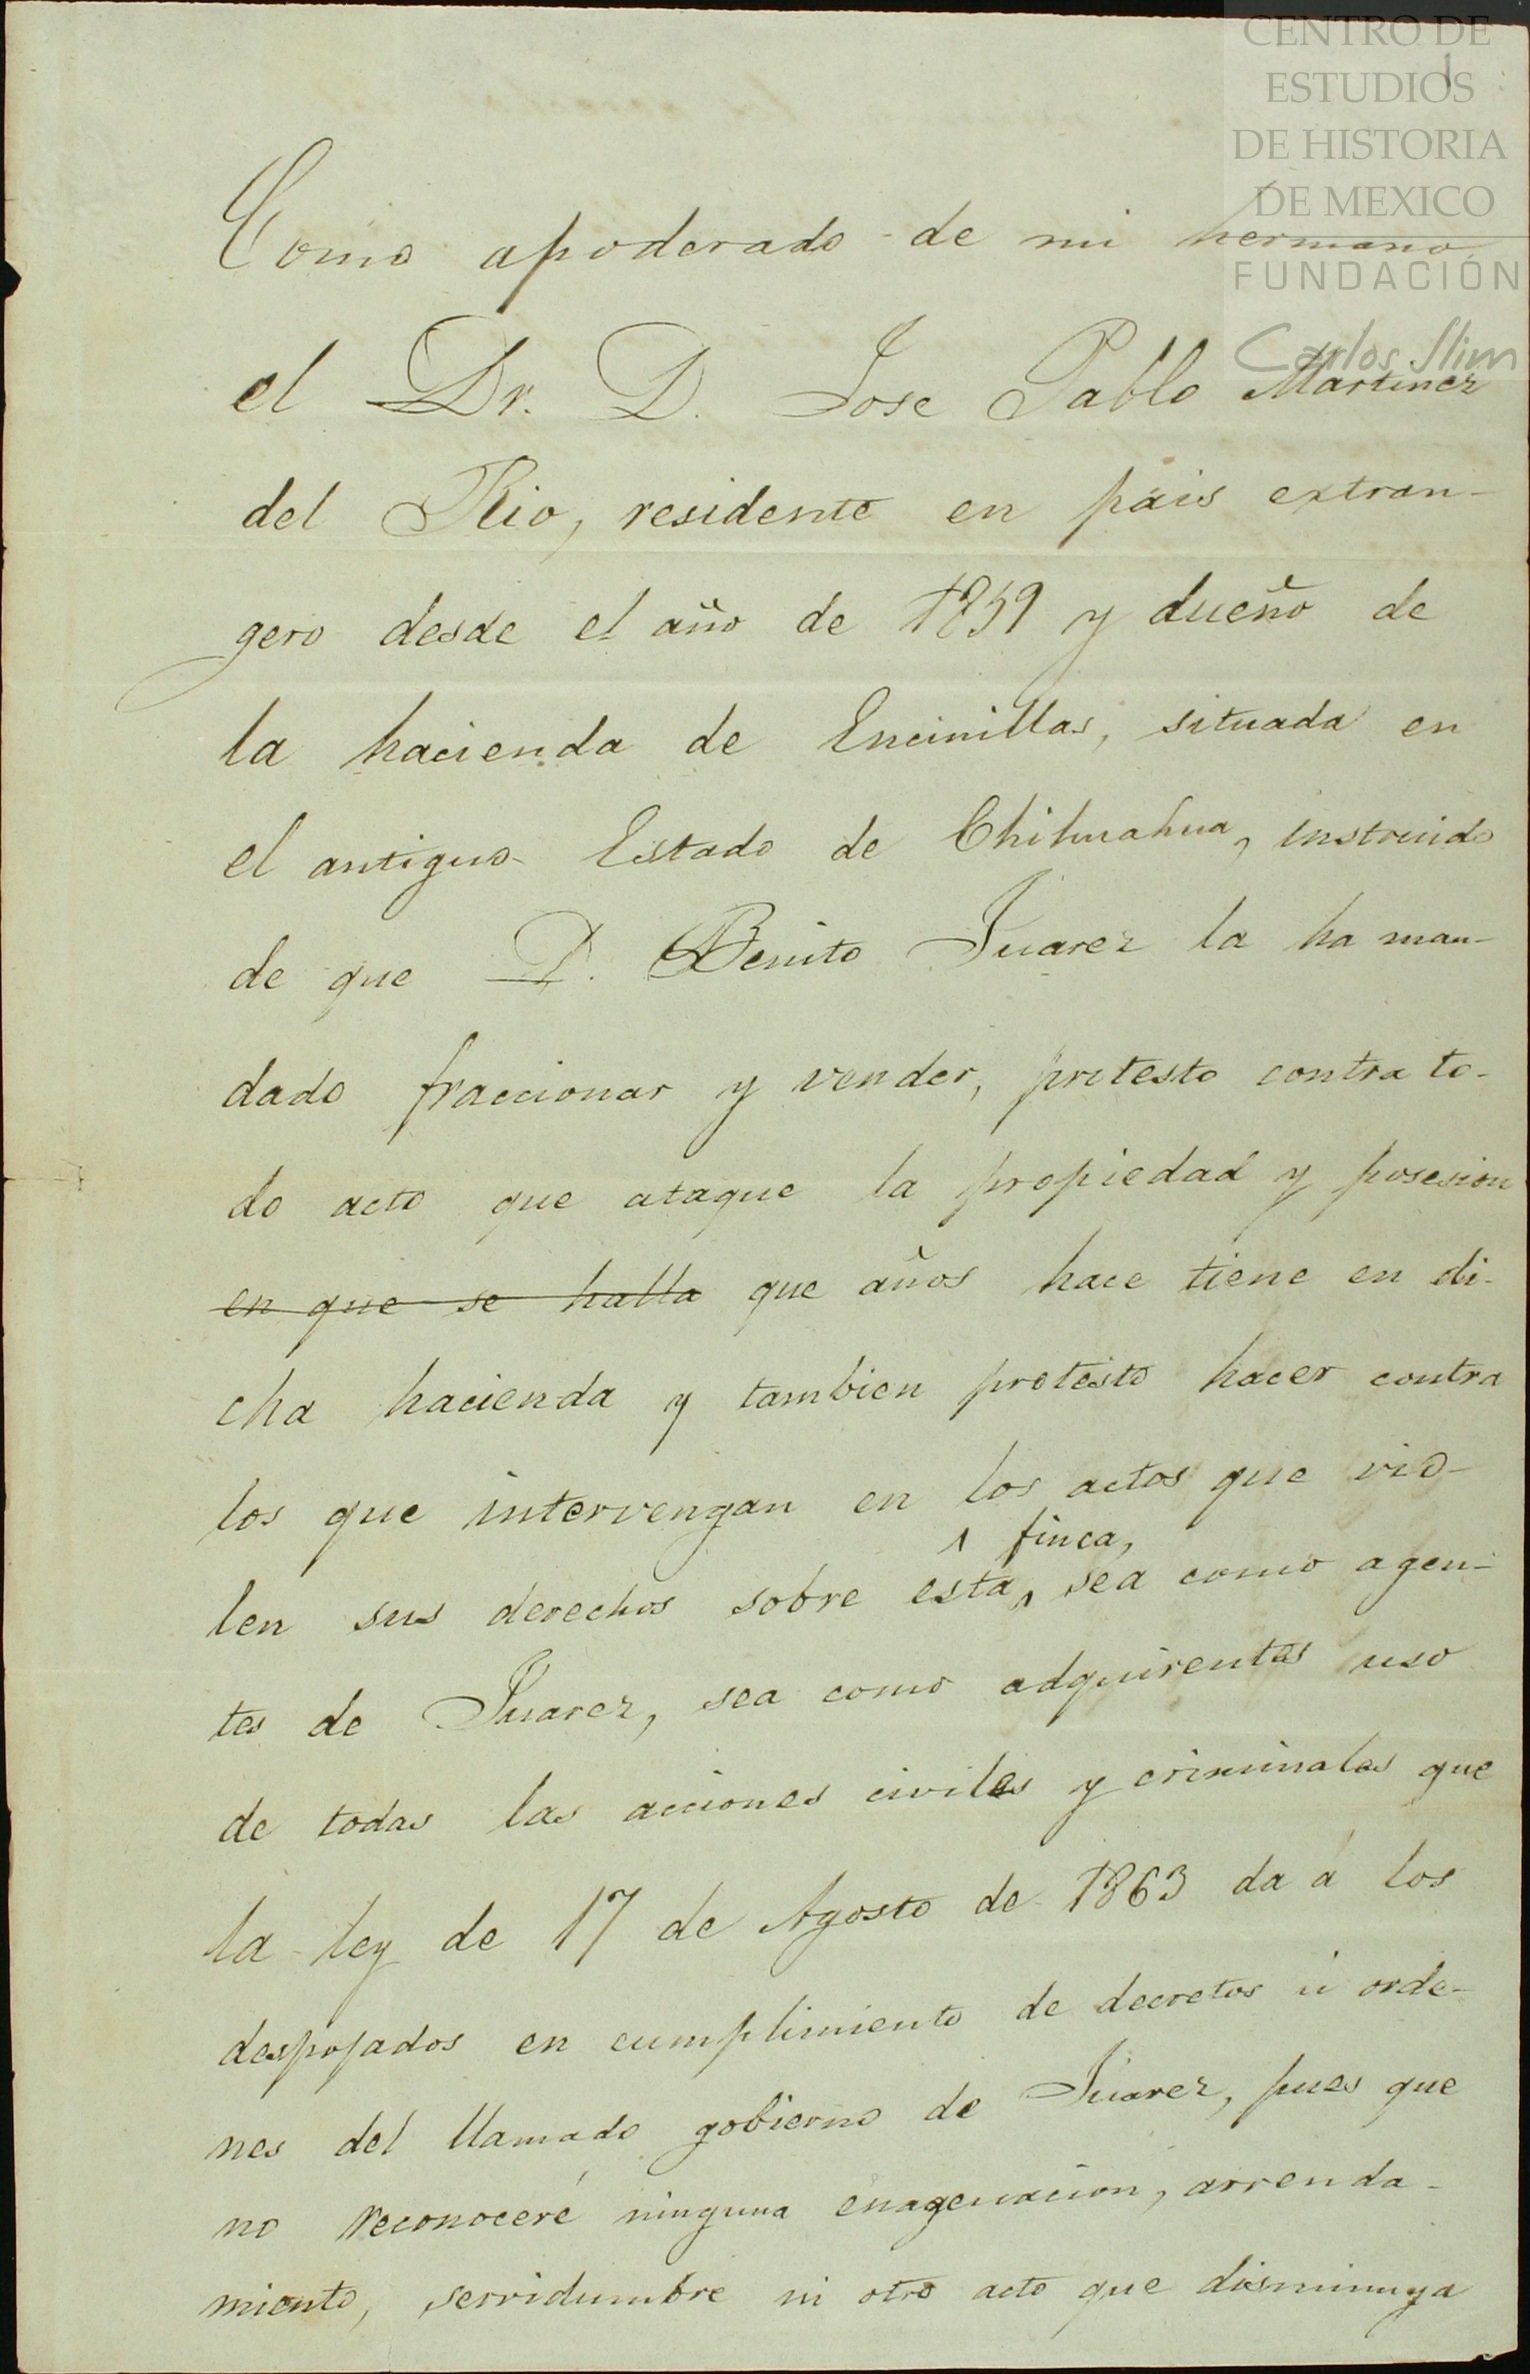 CENTRO DE
ESTUDIOS
DE HISTORIA
DE MEXICO
FUNDACIÓN
Carlos Slim
1
Como apoderado de mi hermano
el Dr. D. Jose Pablo Martinez
del Rio, residente en páis extran-
gero desde el año de 1859 y dueño de
la hacienda de Encinillas, situada en
el antiguo Estado de Chihuahua, instruido
de que D. Benito Juarez la ha man-
dado fraccionar y vender, protesto contra to-
do acto que ataque la propiedad y posesion
en que se halla que años hace tiene en di-
cha hacienda y tambien protesto hacer contra
los que intervengan en los actos que vio-
finca,
len sus derechos sobre esta, sea como agen-
tes de Juarez, sea como adquirentes uso
de todas las acciones civiles y criminales que
la ley de 17 de Agosto de 1863 da á los
despojados en cumplimiento de decretos ú orde-
nes del llamado gobierno de Juarez, pues que
no reconoceré ninguna enagenacion, arrenda-
miento, servidumbre ni otro acto que disminuya